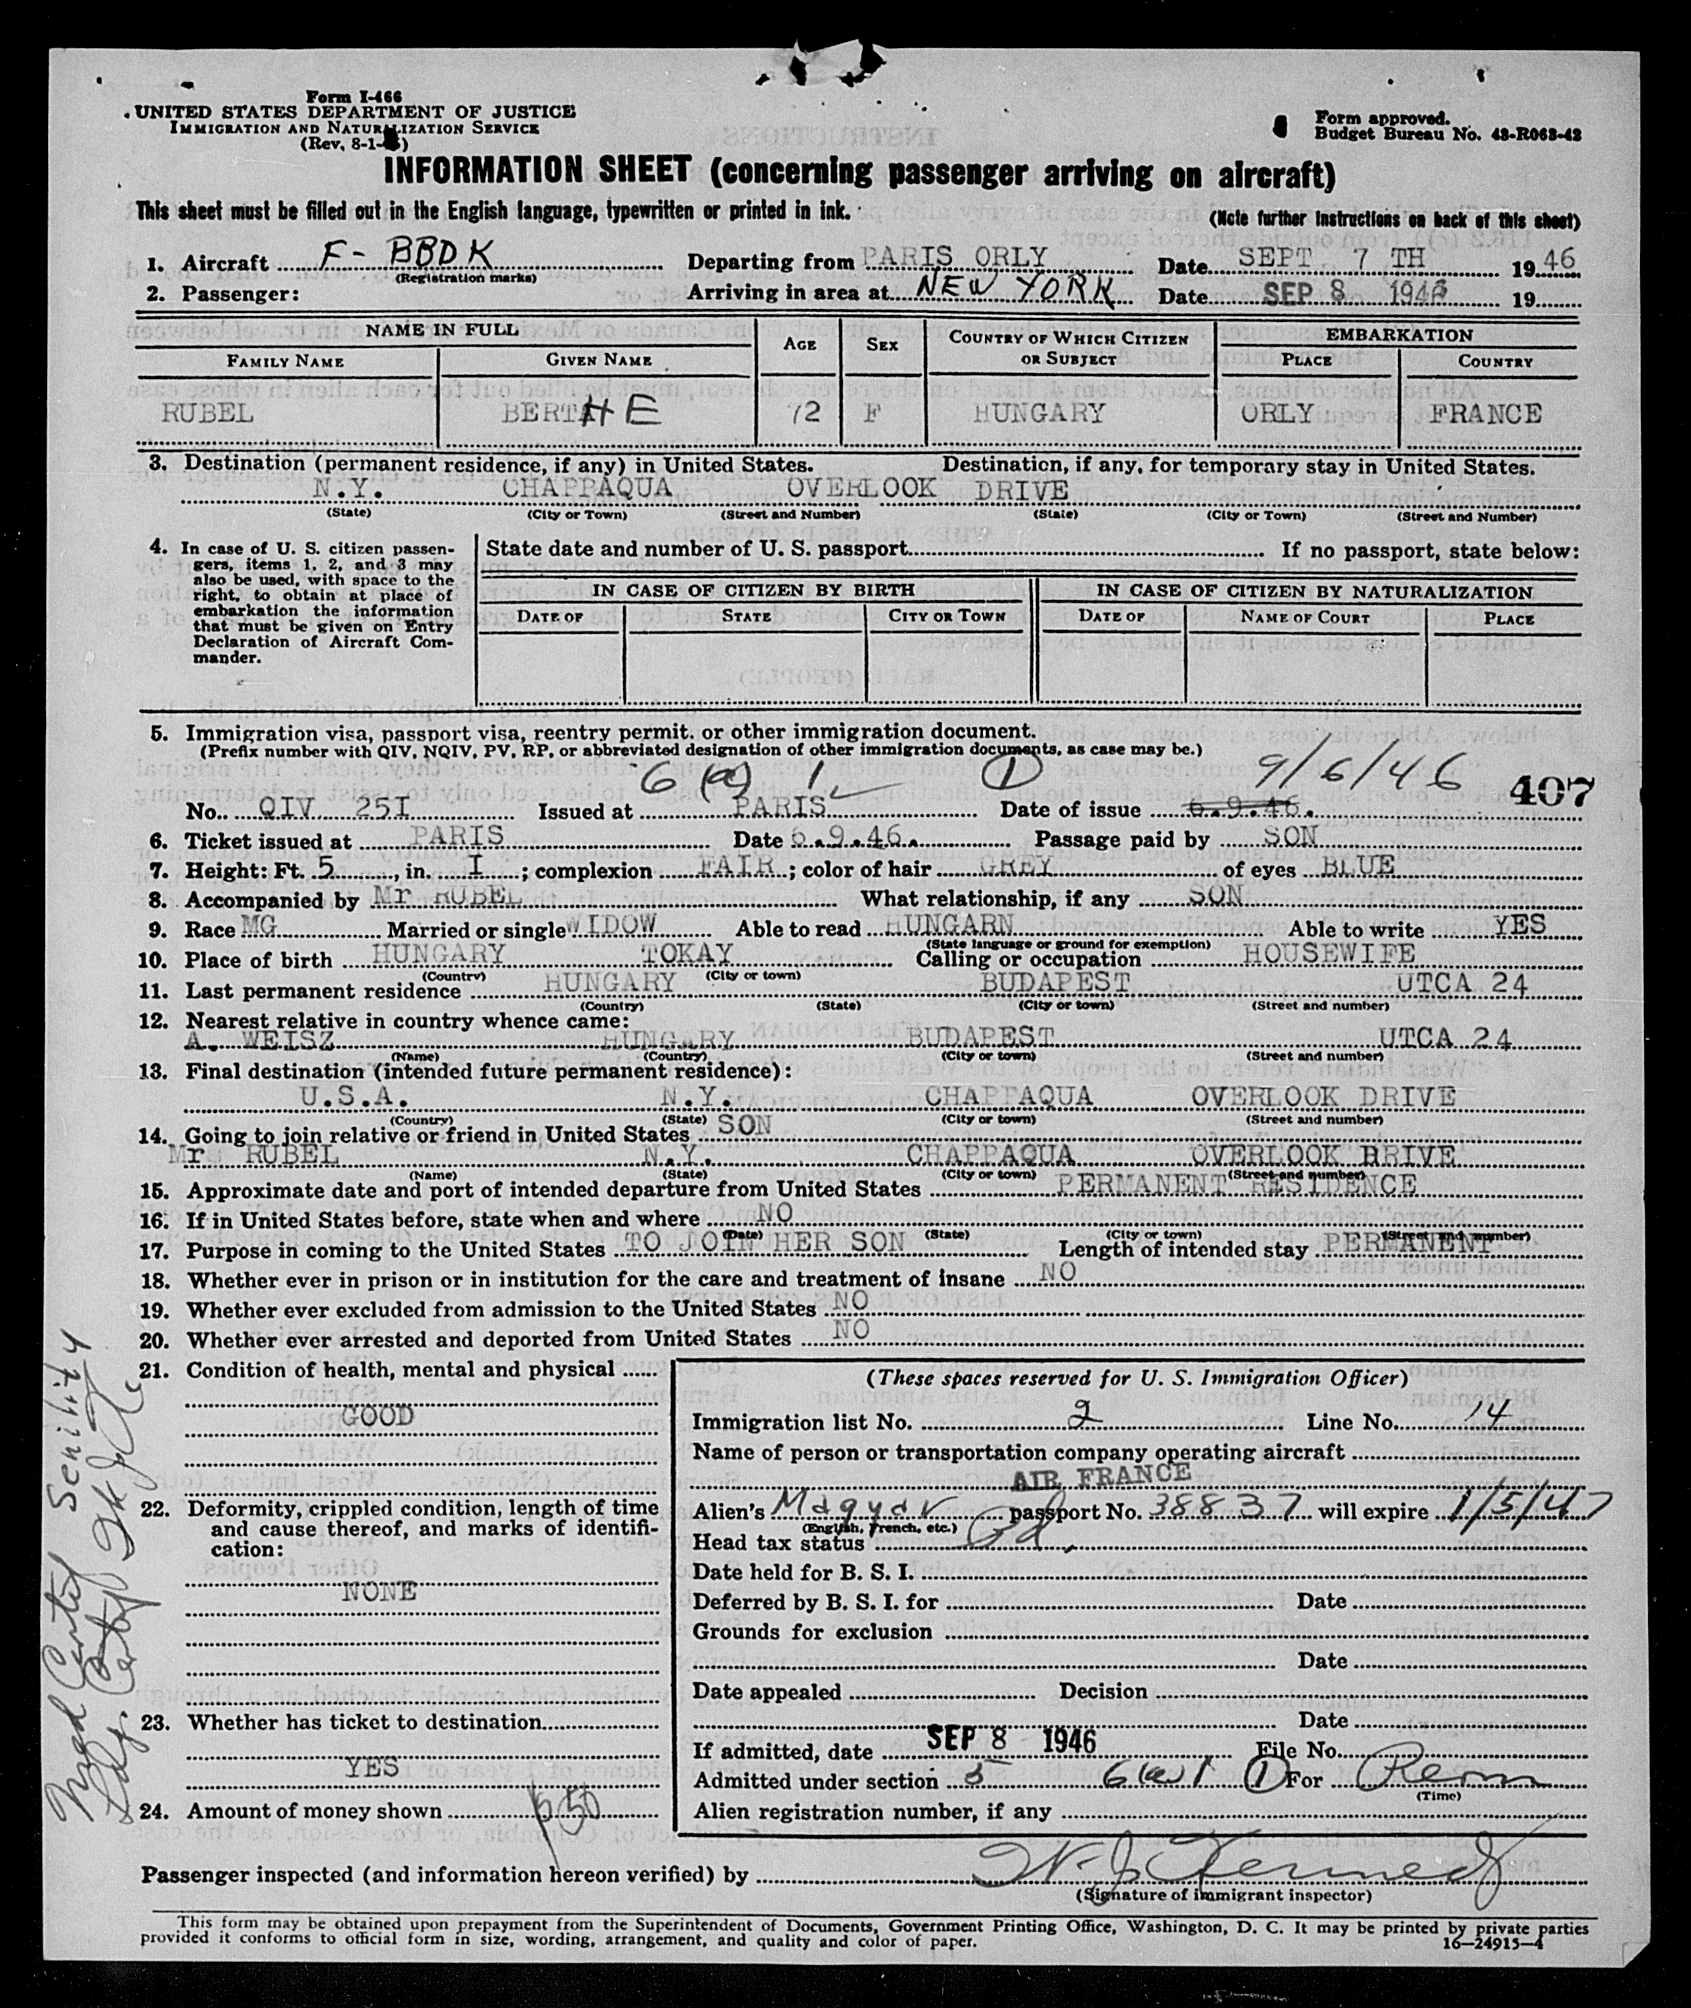 Form I-466
UNITED STATES DEPARTMENT OF JUSTICE
IMMIGRATION AND NATURALIZATION SERVICE
(Rev. 8-1-)
Form approved.
Budget Bureau No. 43-R063-42
INFORMATION SHEET (concerning passenger arriving on aircraft)
This sheet must be filled out in the English language, typewritten or printed in ink.
(Note further instructions on back of this sheet)
1. Aircraft F-BBDK Departing from PARIS ORLY Date SEPT 7 TH 1946
(Registration marks)
2. Passenger: Arriving in area at NEW YORK Date SEP 8 1946 19
NAME IN FULL AGE SEX COUNTRY OF WHICH CITIZEN OR SUBJECT EMBARKATION
FAMILY NAME GIVEN NAME PLACE COUNTRY
RUBEL BERTHE 72 F HUNGARY ORLY FRANCE
3. Destination (permanent residence, if any) in United States. Destination, if any, for temporary stay in United States.
N.Y. CHAPPAQUA OVERLOOK DRIVE
(State) (City or Town) (Street and Number) (State) (City or Town) (Street and Number)
4. In case of U. S. citizen passen-
gers, items 1, 2, and 3 may
also be used, with space to the
right, to obtain at place of
embarkation the information
that must be given on Entry
Declaration of Aircraft Com-
mander.
State date and number of U. S. passport If no passport, state below:
IN CASE OF CITIZEN BY BIRTH IN CASE OF CITIZEN BY NATURALIZATION
DATE OF STATE CITY OR TOWN DATE OF NAME OF COURT PLACE
5. Immigration visa, passport visa, reentry permit, or other immigration document.
(Prefix number with QIV, NQIV, PV, RP, or abbreviated designation of other immigration documents, as case may be.)
6 (a) 1 1 9/6/46 407
No. QIV 25I Issued at PARIS Date of issue 6.9.46.
6. Ticket issued at PARIS Date 6.9.46. Passage paid by SON
7. Height: Ft. 5, in. I; complexion FAIR; color of hair GREY of eyes BLUE
8. Accompanied by Mr RUBEL What relationship, if any SON
9. Race MG Married or single WIDOW Able to read HUNGARN Able to write YES
(State language or ground for exemption)
10. Place of birth HUNGARY TOKAY Calling or occupation HOUSEWIFE
(Country) (City or town)
11. Last permanent residence HUNGARY BUDAPEST UTCA 24
(Country) (State) (City or town) (Street and number)
12. Nearest relative in country whence came:
A. WEISZ HUNGARY BUDAPEST UTCA 24
(Name) (Country) (City or town) (Street and number)
13. Final destination (intended future permanent residence):
U.S.A. N.Y. CHAPPAQUA OVERLOOK DRIVE
(Country) (State) (City or town) (Street and number)
14. Going to join relative or friend in United States SON
Mr RUBEL N.Y. CHAPPAQUA OVERLOOK DRIVE
(Name) (State) (City or town) (Street and number)
15. Approximate date and port of intended departure from United States PERMANENT RESIDENCE
16. If in United States before, state when and where NO
(Date) (State) (City or town) (Street and number)
17. Purpose in coming to the United States TO JOIN HER SON Length of intended stay PERMANENT
18. Whether ever in prison or in institution for the care and treatment of insane NO
19. Whether ever excluded from admission to the United States NO
20. Whether ever arrested and deported from United States NO
21. Condition of health, mental and physical
GOOD
22. Deformity, crippled condition, length of time
and cause thereof, and marks of identifi-
cation:
NONE
23. Whether has ticket to destination
YES
24. Amount of money shown 50
Med Senility
(These spaces reserved for U. S. Immigration Officer)
Immigration list No. 2 Line No. 14
Name of person or transportation company operating aircraft
AIR FRANCE
Alien's Magyar passport No. 38837 will expire 1/5/47
(English, French, etc.)
Head tax status Pd.
Date held for B. S. I.
Deferred by B. S. I. for Date
Grounds for exclusion
Date
Date appealed Decision
Date
If admitted, date SEP 8 1946 File No.
Admitted under section 5 6(a) 1 1 For Perm
(Time)
Alien registration number, if any
Passenger inspected (and information hereon verified) by W. J. Kennedy
(Signature of immigrant inspector)
This form may be obtained upon prepayment from the Superintendent of Documents, Government Printing Office, Washington, D. C. It may be printed by private parties
provided it conforms to official form in size, wording, arrangement, and quality and color of paper.
16—24915-4